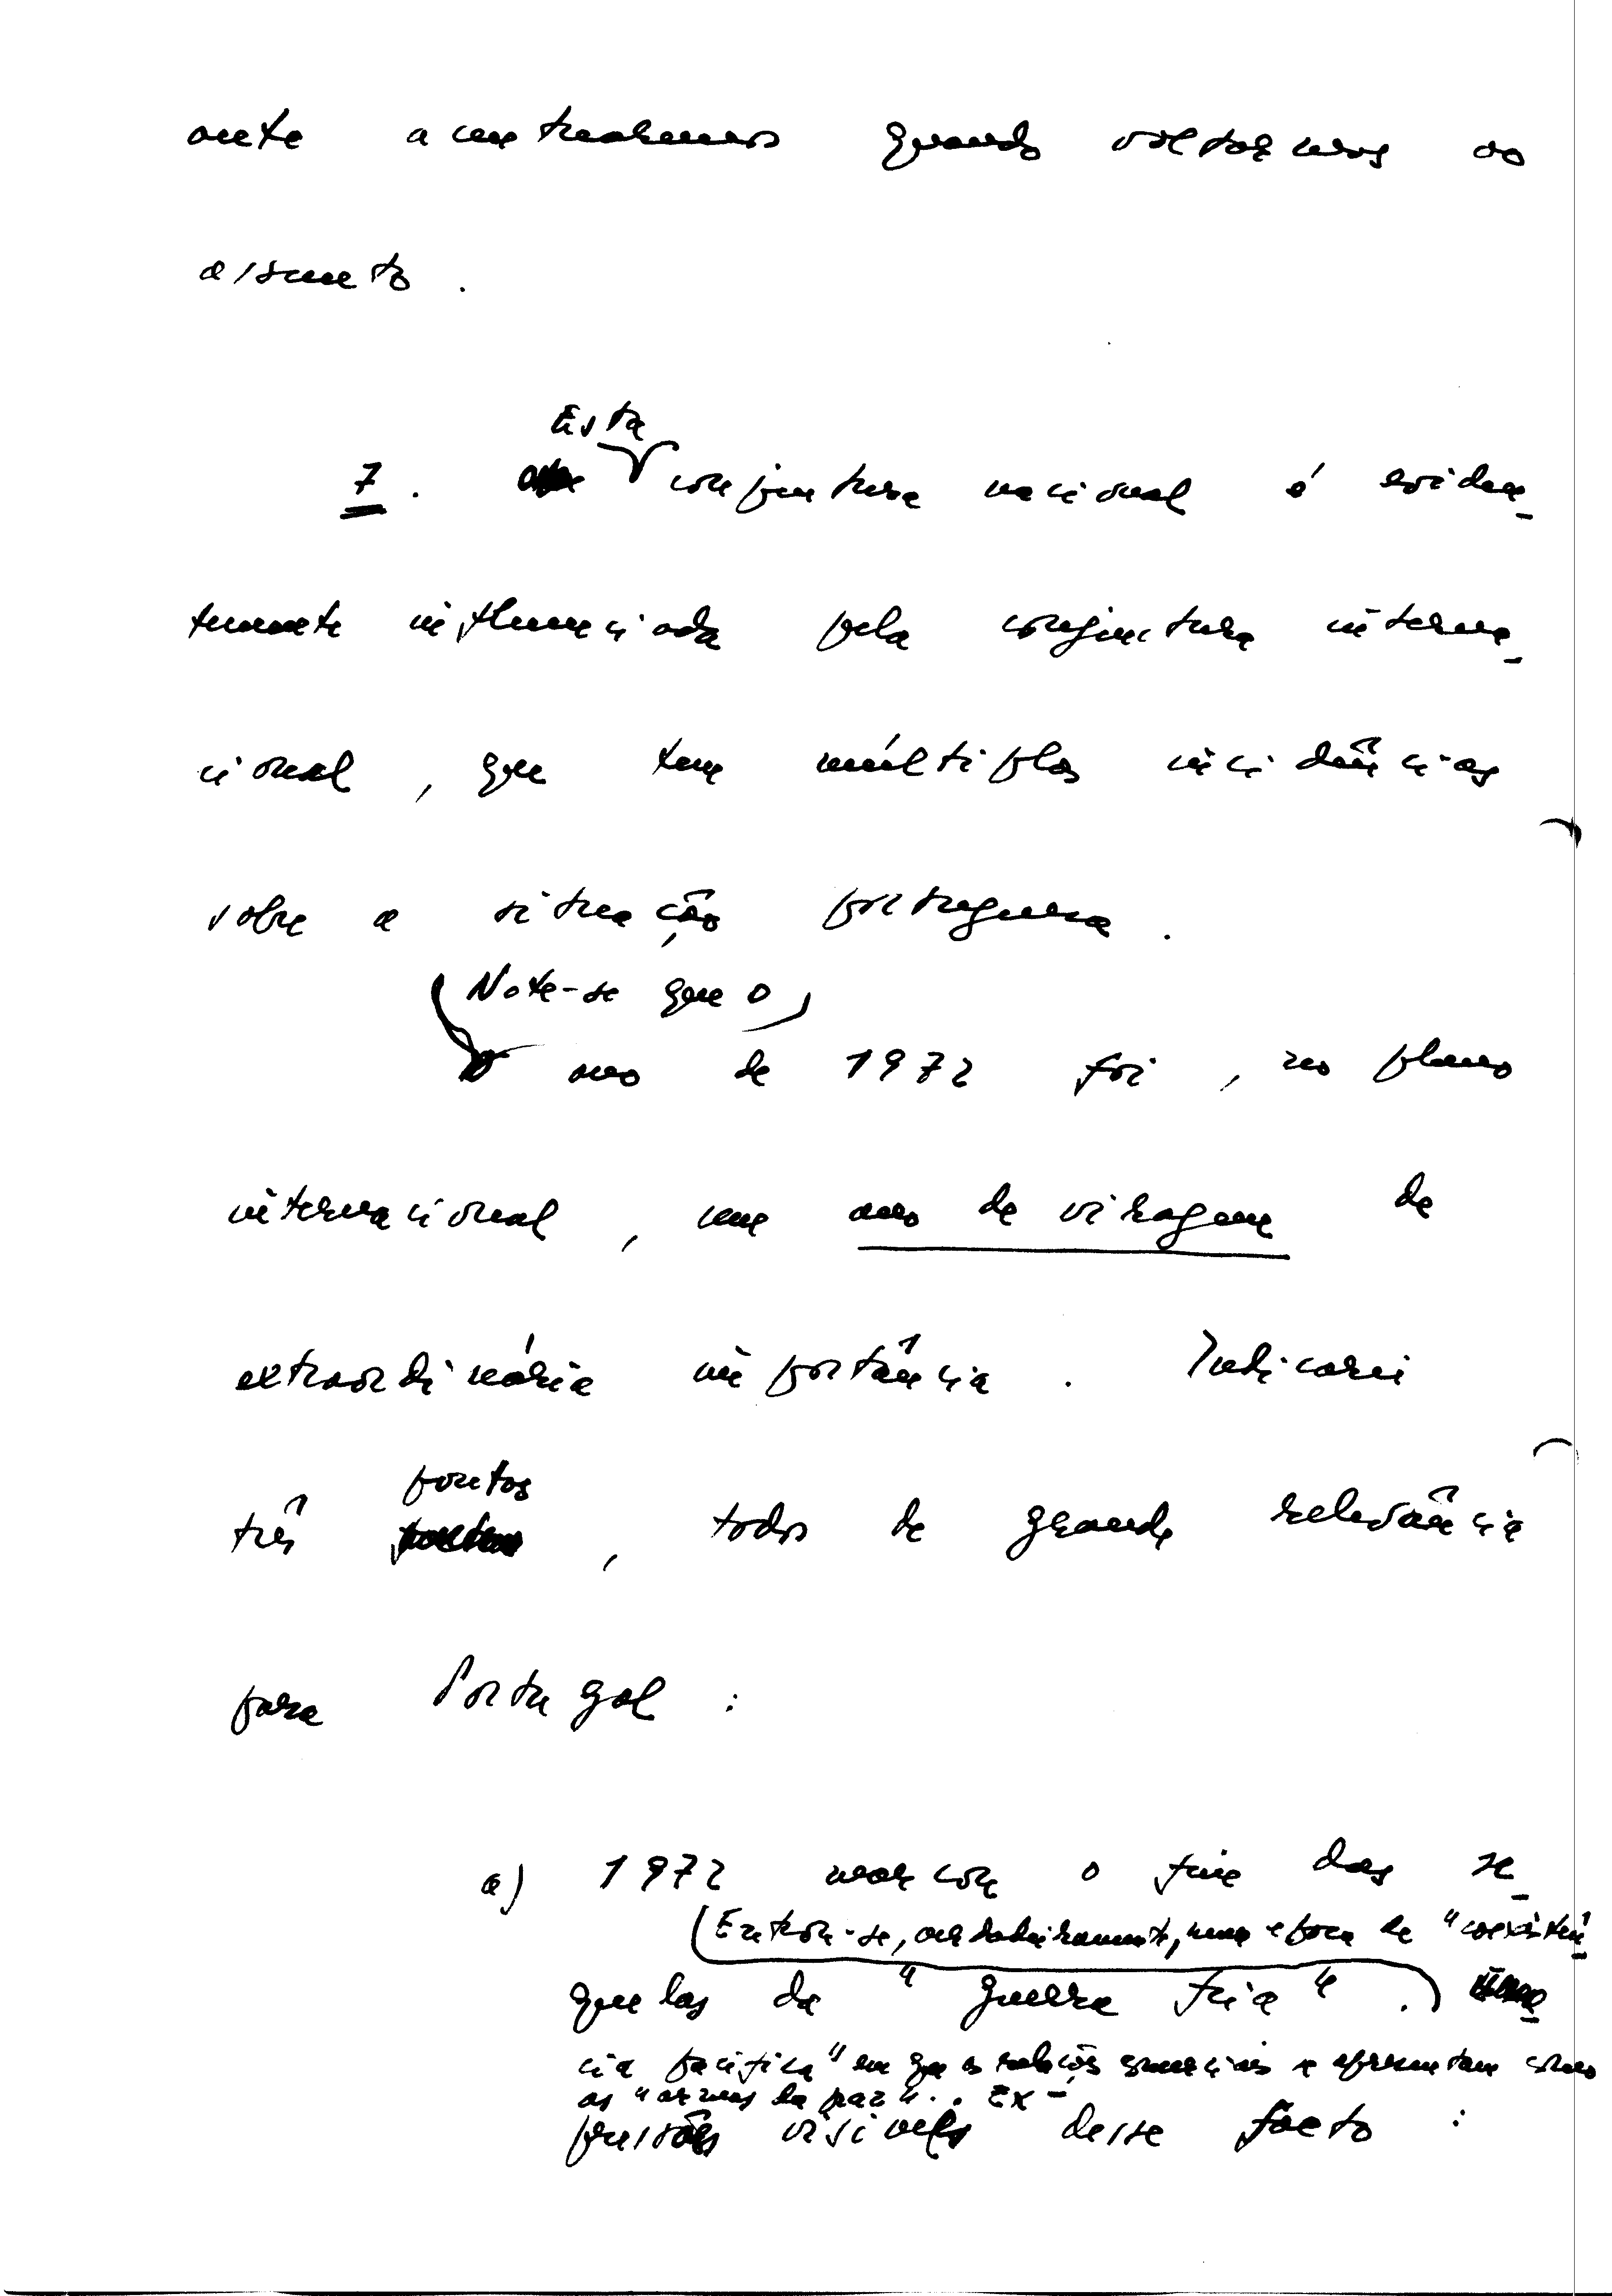 mente acentuaremos quando voltarmos ao
assunto.
Esta
7. conjuntura nacional é eviden-
temente influenciada pela conjuntura interna-
cional, que tem múltiplas incidências
sobre a situação portuguesa.
(Note-se que o)
ano de 1972 foi, no plano
internacional, um ano de viragem de
extraordinária importância. Indicarei
pontos
três, todos de grande relevância
para Portugal:
a) 1972 marcou o fim das se-
(Entrou-se, verdadeiramente, numa época de "coexistên-
quelas da "guerra fria".)
cia pacífica" em que as relações comerciais se apresentam como
as "armas da paz".. Ex-
pressões visíveis desse facto: